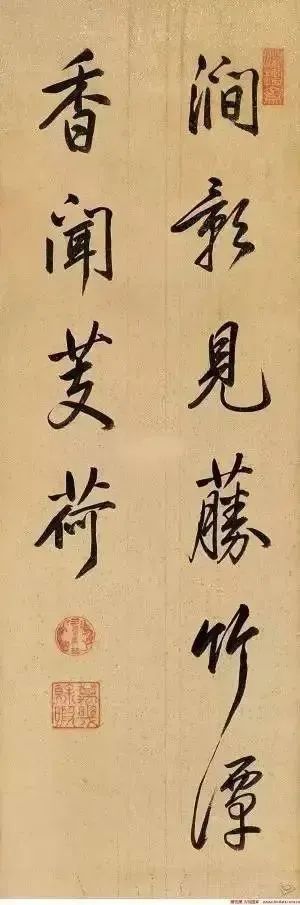 澗影見藤竹潭
香聞芰荷